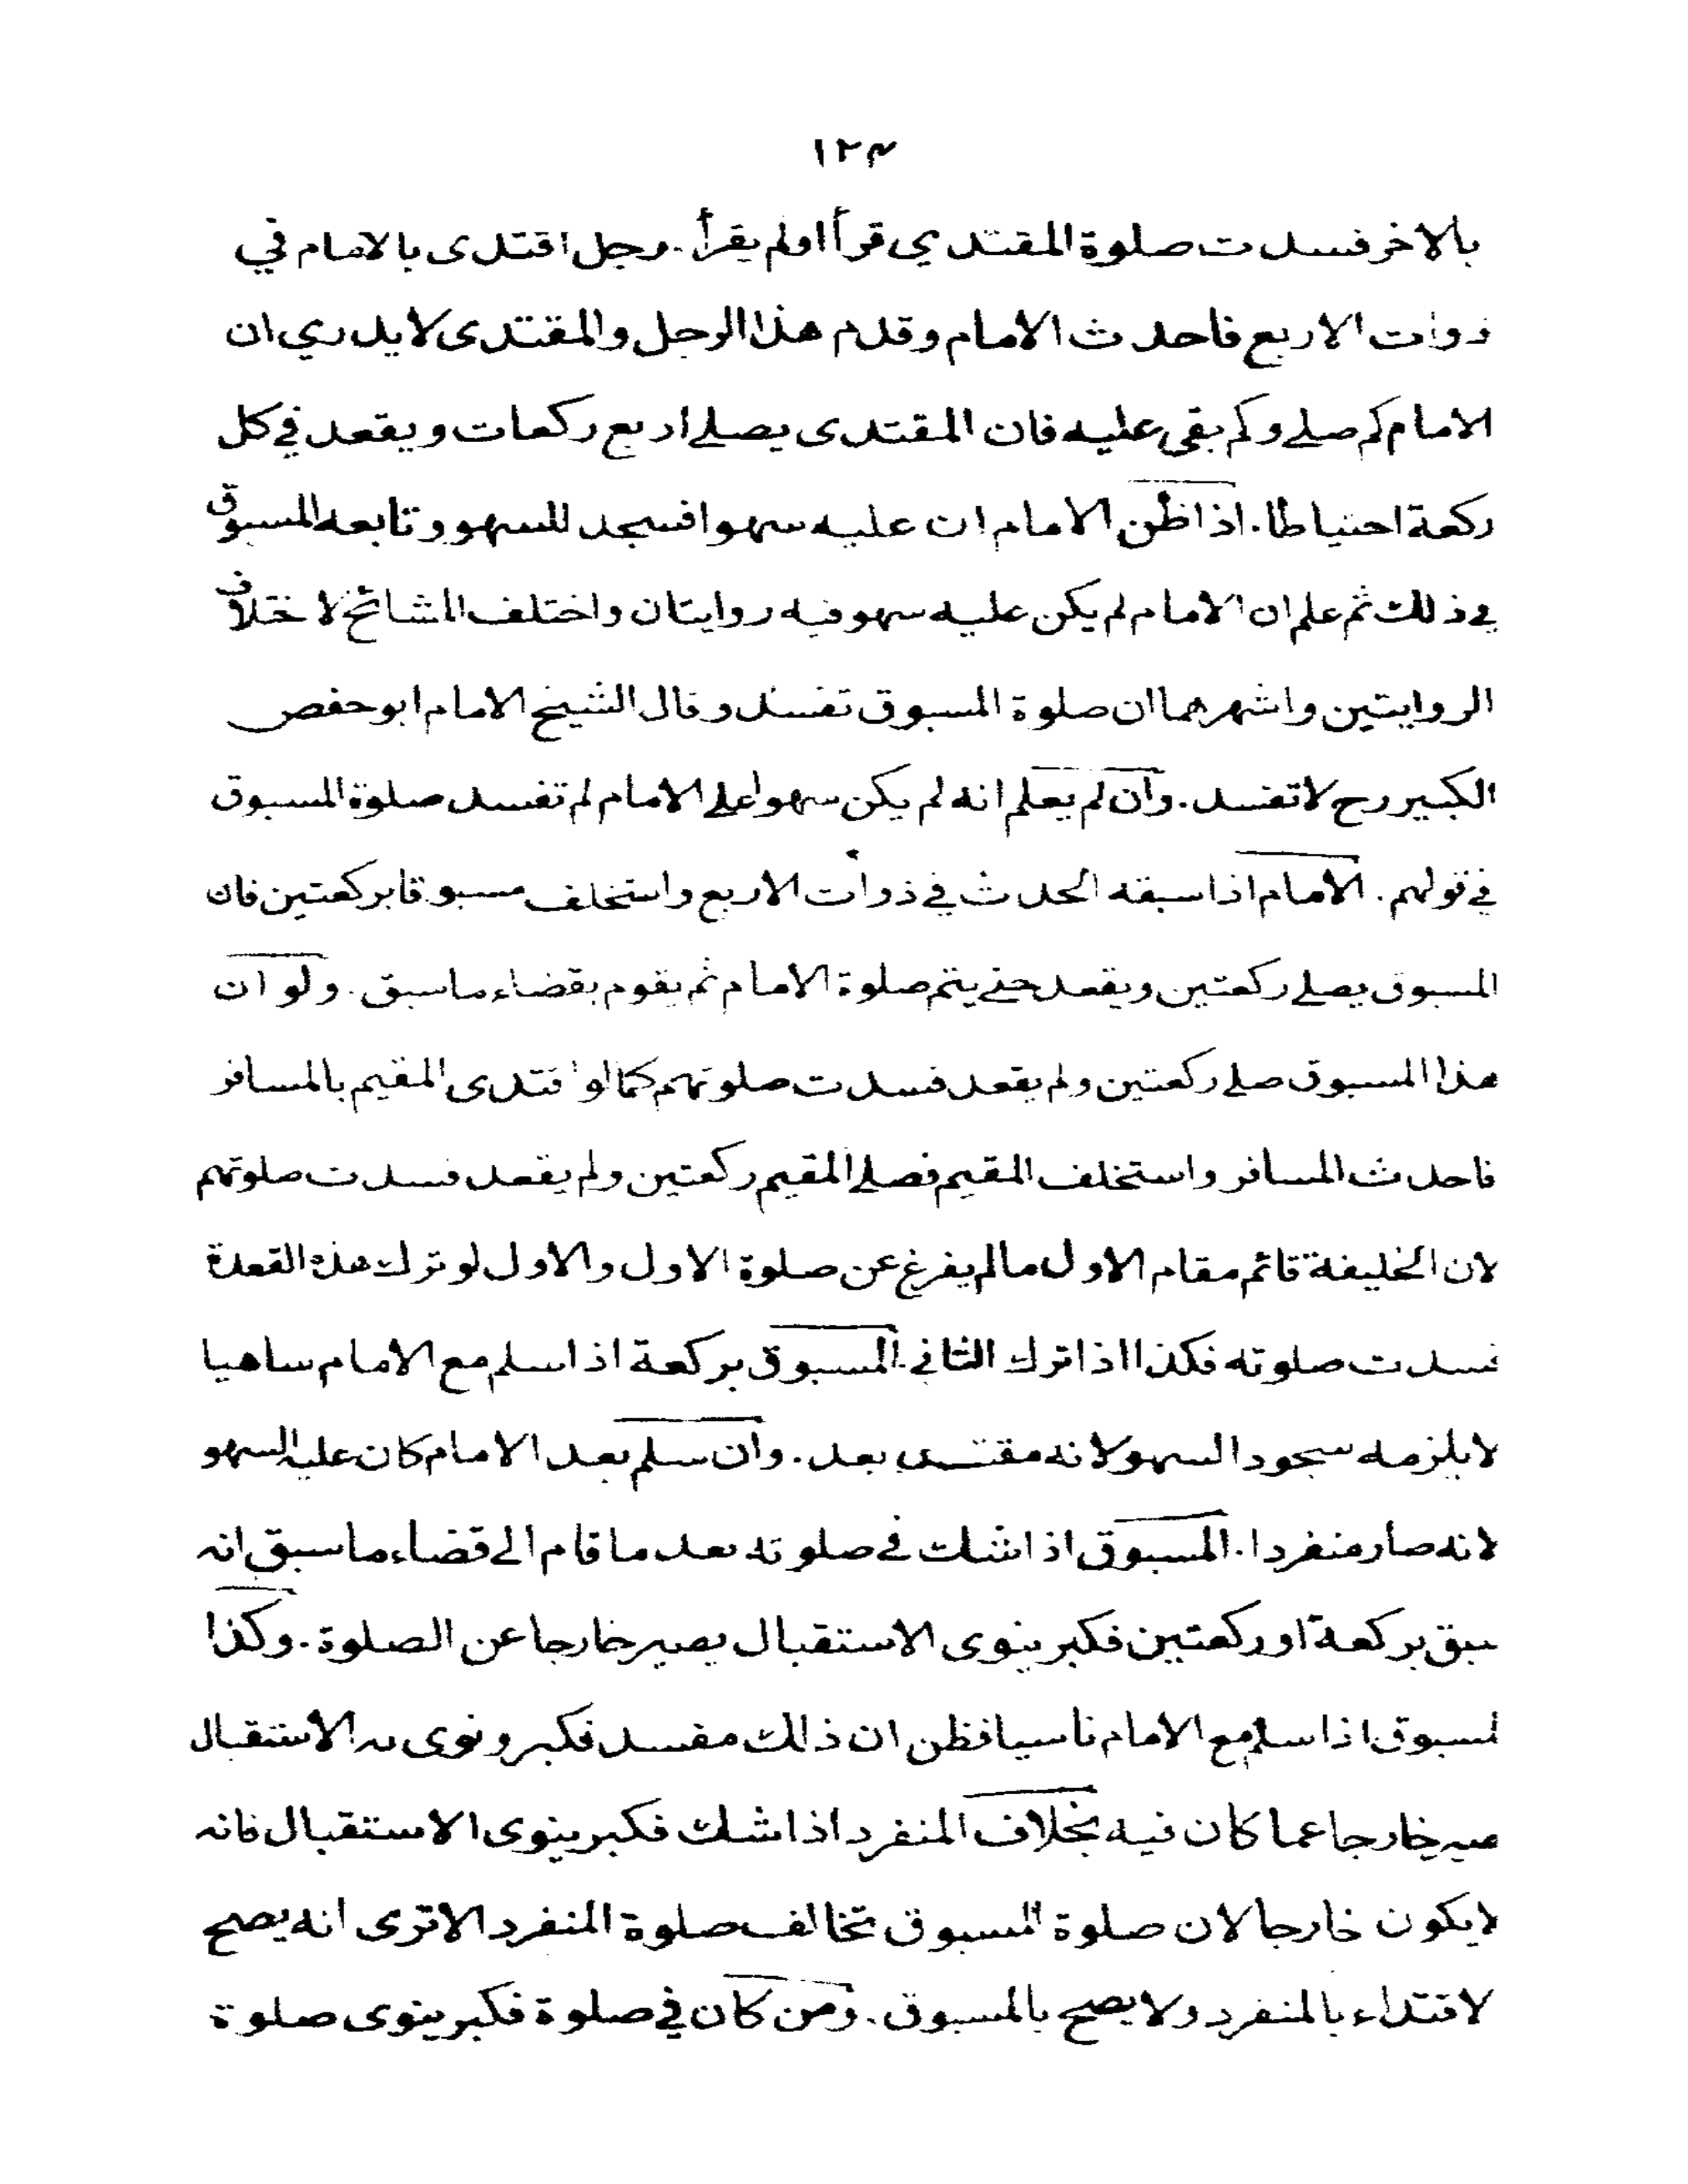 ۱۲۴
بالاخر فسدت صلوة المقتدي قرأ اولم يقرأ. رجل اقتدى بالامام في
ذوات الاربع فاحدث الامام وقدم هذا الرجل والمقتدى لايدري ان
الامام كم صلے وكم بقى عليه فان المقتدى يصلے اربع ركعات ويقعد في كل
ركعة احتياطا. اذا ظن الامام ان عليه سهوا فسجد للسهو وتابعه المسبوق
في ذلك ثم علم ان الامام لم يكن عليه سهو فيه روايتان واختلف المشائخ لاختلاف
الروايتين واشهرهما ان صلوة المسبوق تفسد وقال الشيخ الامام ابوحفص
الكبير رح لاتفسد. وان لم يعلم انه لم يكن سهوا علے الامام لم تفسد صلوة المسبوق
في قولهم. الامام اذا سبقه الحدث في ذوات الاربع واستخلف مسبوقا بركعتين فان
المسبوق يصلے ركعتين ويقعد حتے يتم صلوة الامام ثم يقوم بقضاء ماسبق. ولو ان
هذا المسبوق صلے ركعتين ولم يقعد فسدت صلوتهم كما لو اقتدى المقيم بالمسافر
فاحدث المسافر واستخلف المقيم فصلے المقيم ركعتين ولم يقعد فسدت صلوتهم
لان الخليفة قائم مقام الاول مالم يفرغ عن صلوة الاول والاول لو ترك هذه القعدة
فسدت صلوته فكذا اذا ترك الثاني. المسبوق بركعة اذا سلم مع الامام ساهيا
لايلزمه سجود السهو لانه مقتدى بعد. وان سلم بعد الامام كان عليه السهو
لانه صار منفردا. المسبوق اذا شك في صلوته بعد ما قام الے قضاء ماسبق انه
سبق بركعة او ركعتين فكبر ينوى الاستقبال يصير خارجا عن الصلوة. وكذا
لمسبوق اذا سلم مع الامام ناسيا فظن ان ذلك مفسد فكبر ونوى به الاستقبال
صير خارجا عما كان فيه بخلاف المنفرد اذا شك فكبر ينوى الاستقبال فانه
لايكون خارجا لان صلوة المسبوق تخالف صلوة المنفرد الاترى انه يصح
لاقتداء بالمنفرد ولا يصح بالمسبوق. ومن كان في صلوة فكبر ينوى صلوة